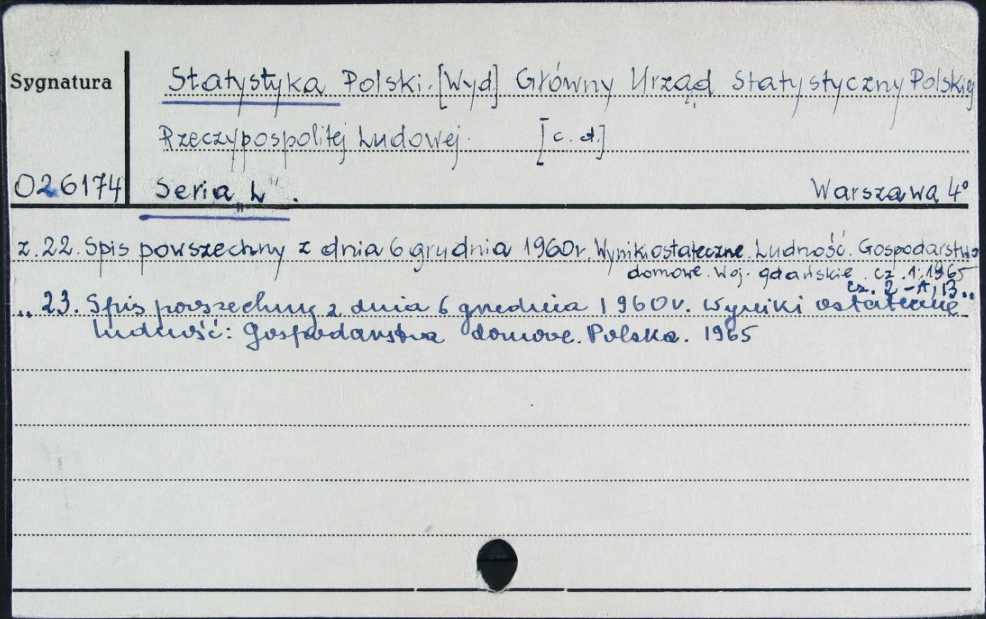 Sygnatura
Statystyka Polski. [Wyd] Główny Urząd Statystyczny Polskiej
Rzeczypospolitej Ludowej. [c.d.]
026174 Seria „L”. Warszawa 4°
z. 22. Spis powszechny z dnia 6 grudnia 1960 r. Wyniki ostateczne. Ludność. Gospodarstwa
domowe. Woj. gdańskie. cz. 1. 1965
cz. 2 - A, B..
„ 23. Spis powszechny z dnia 6 grudnia 1960 r. Wyniki ostateczne
Ludność: Gospodarstwa domowe. Polska. 1965